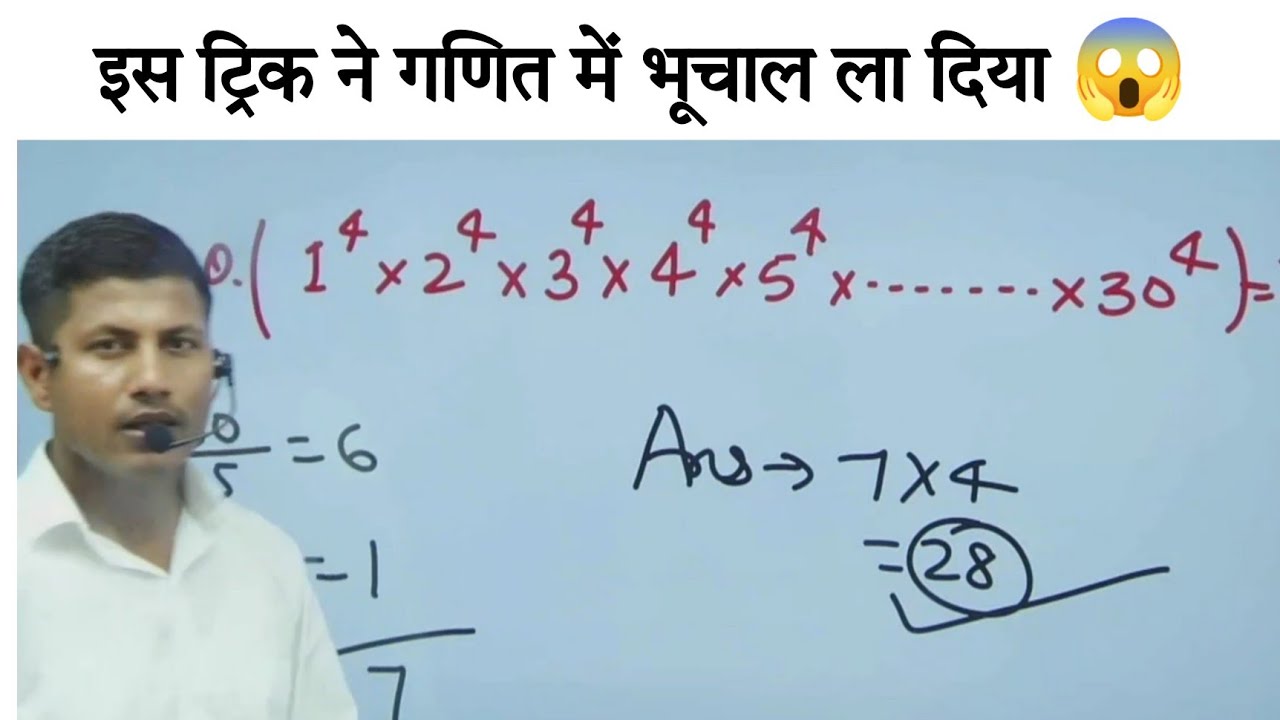 इस ट्रिक ने गणित में भूचाल ला दिया 😱
0.(1⁴×2⁴×3⁴×4⁴×5⁴×.......×30⁴)=
0/5 = 6
= 1
7
Ans → 7×4
= 28